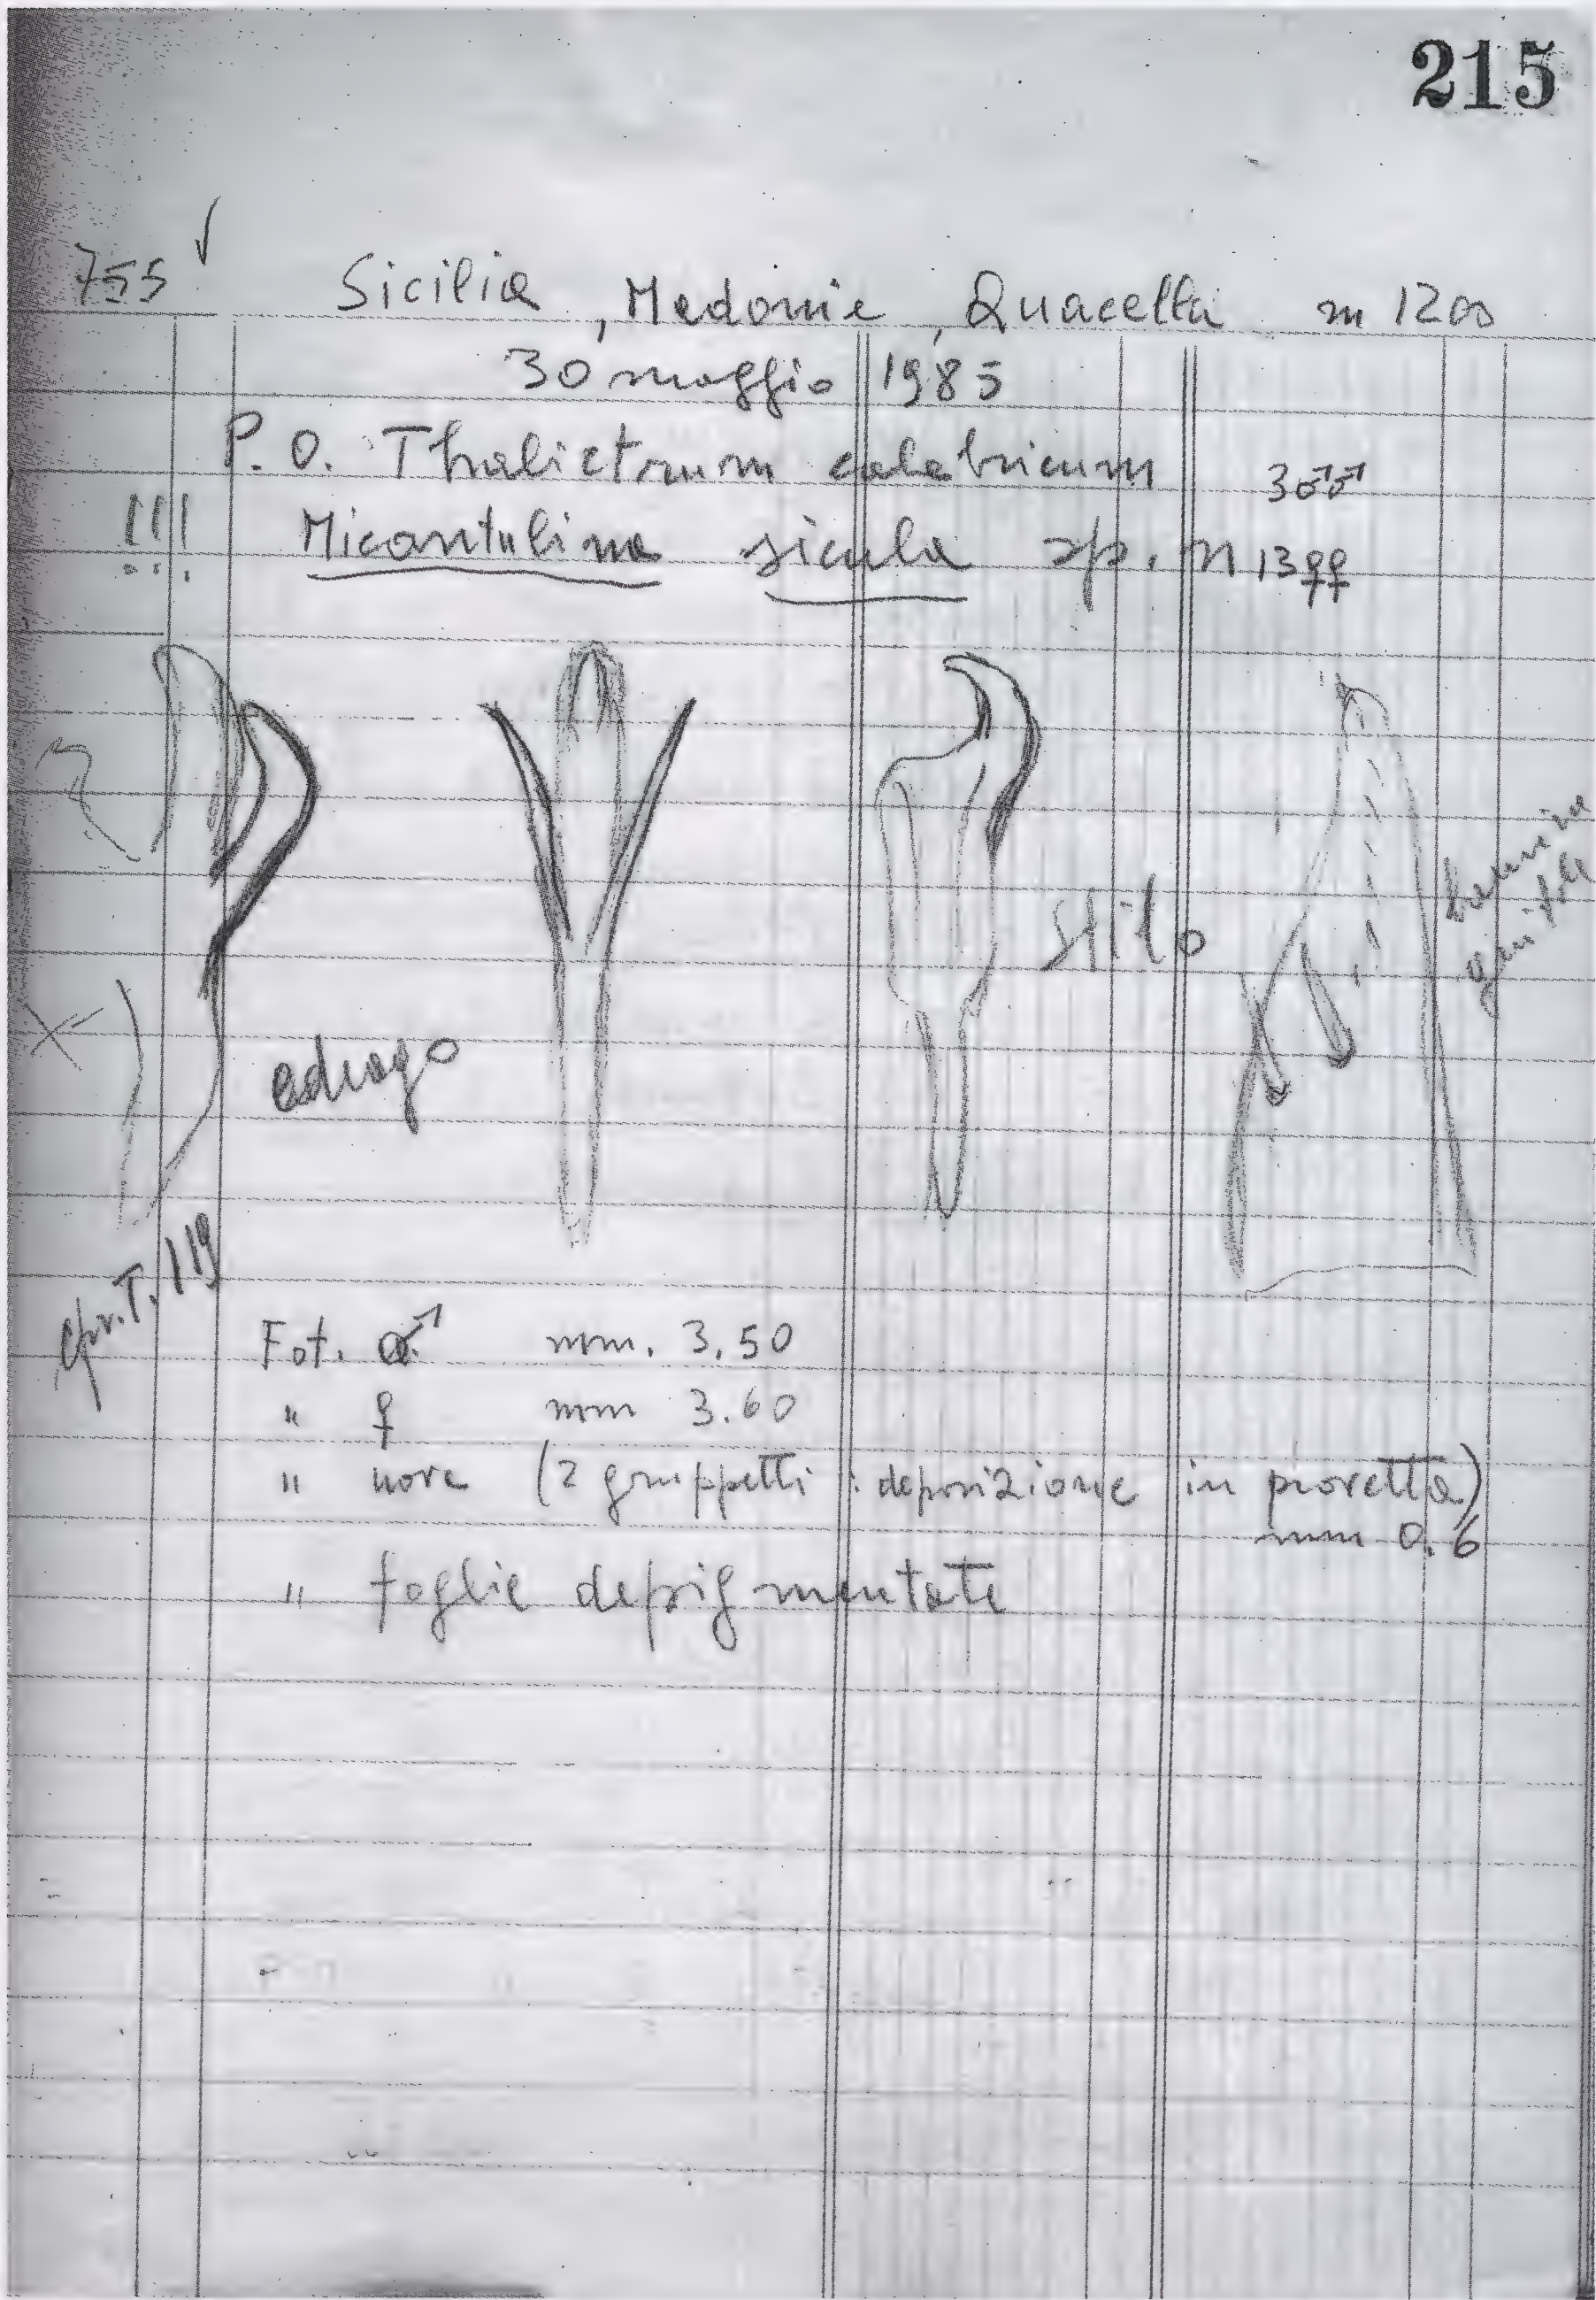 215
755 ✓
Sicilia, Madonie, Quacella m 1200
30 maggio 1985
P. O. Thalictrum calabricum 3♂♂
!!! Micantulina sicula sp. n 13♀♀
edeago
stilo
lamine
genitali
cfr. T. 119
Fot. ♂ mm. 3.50
" ♀ mm 3.60
" uova (2 gruppetti : deposizione in provetta)
mm 0.6
" foglie depigmentate